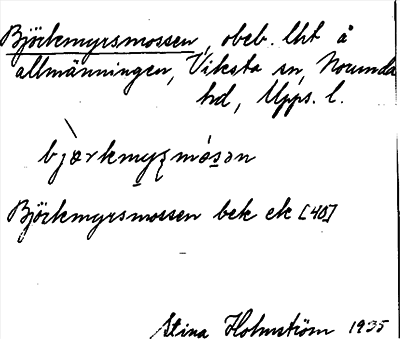 Björkmyrsmossen, obeb. lht å
allmänningen, Viksta sn, Norunda
hd, Upps. l.
bjærkmyʂmósən
Björkmyrsmossen bek ek [40]
Stina Holmström 1935